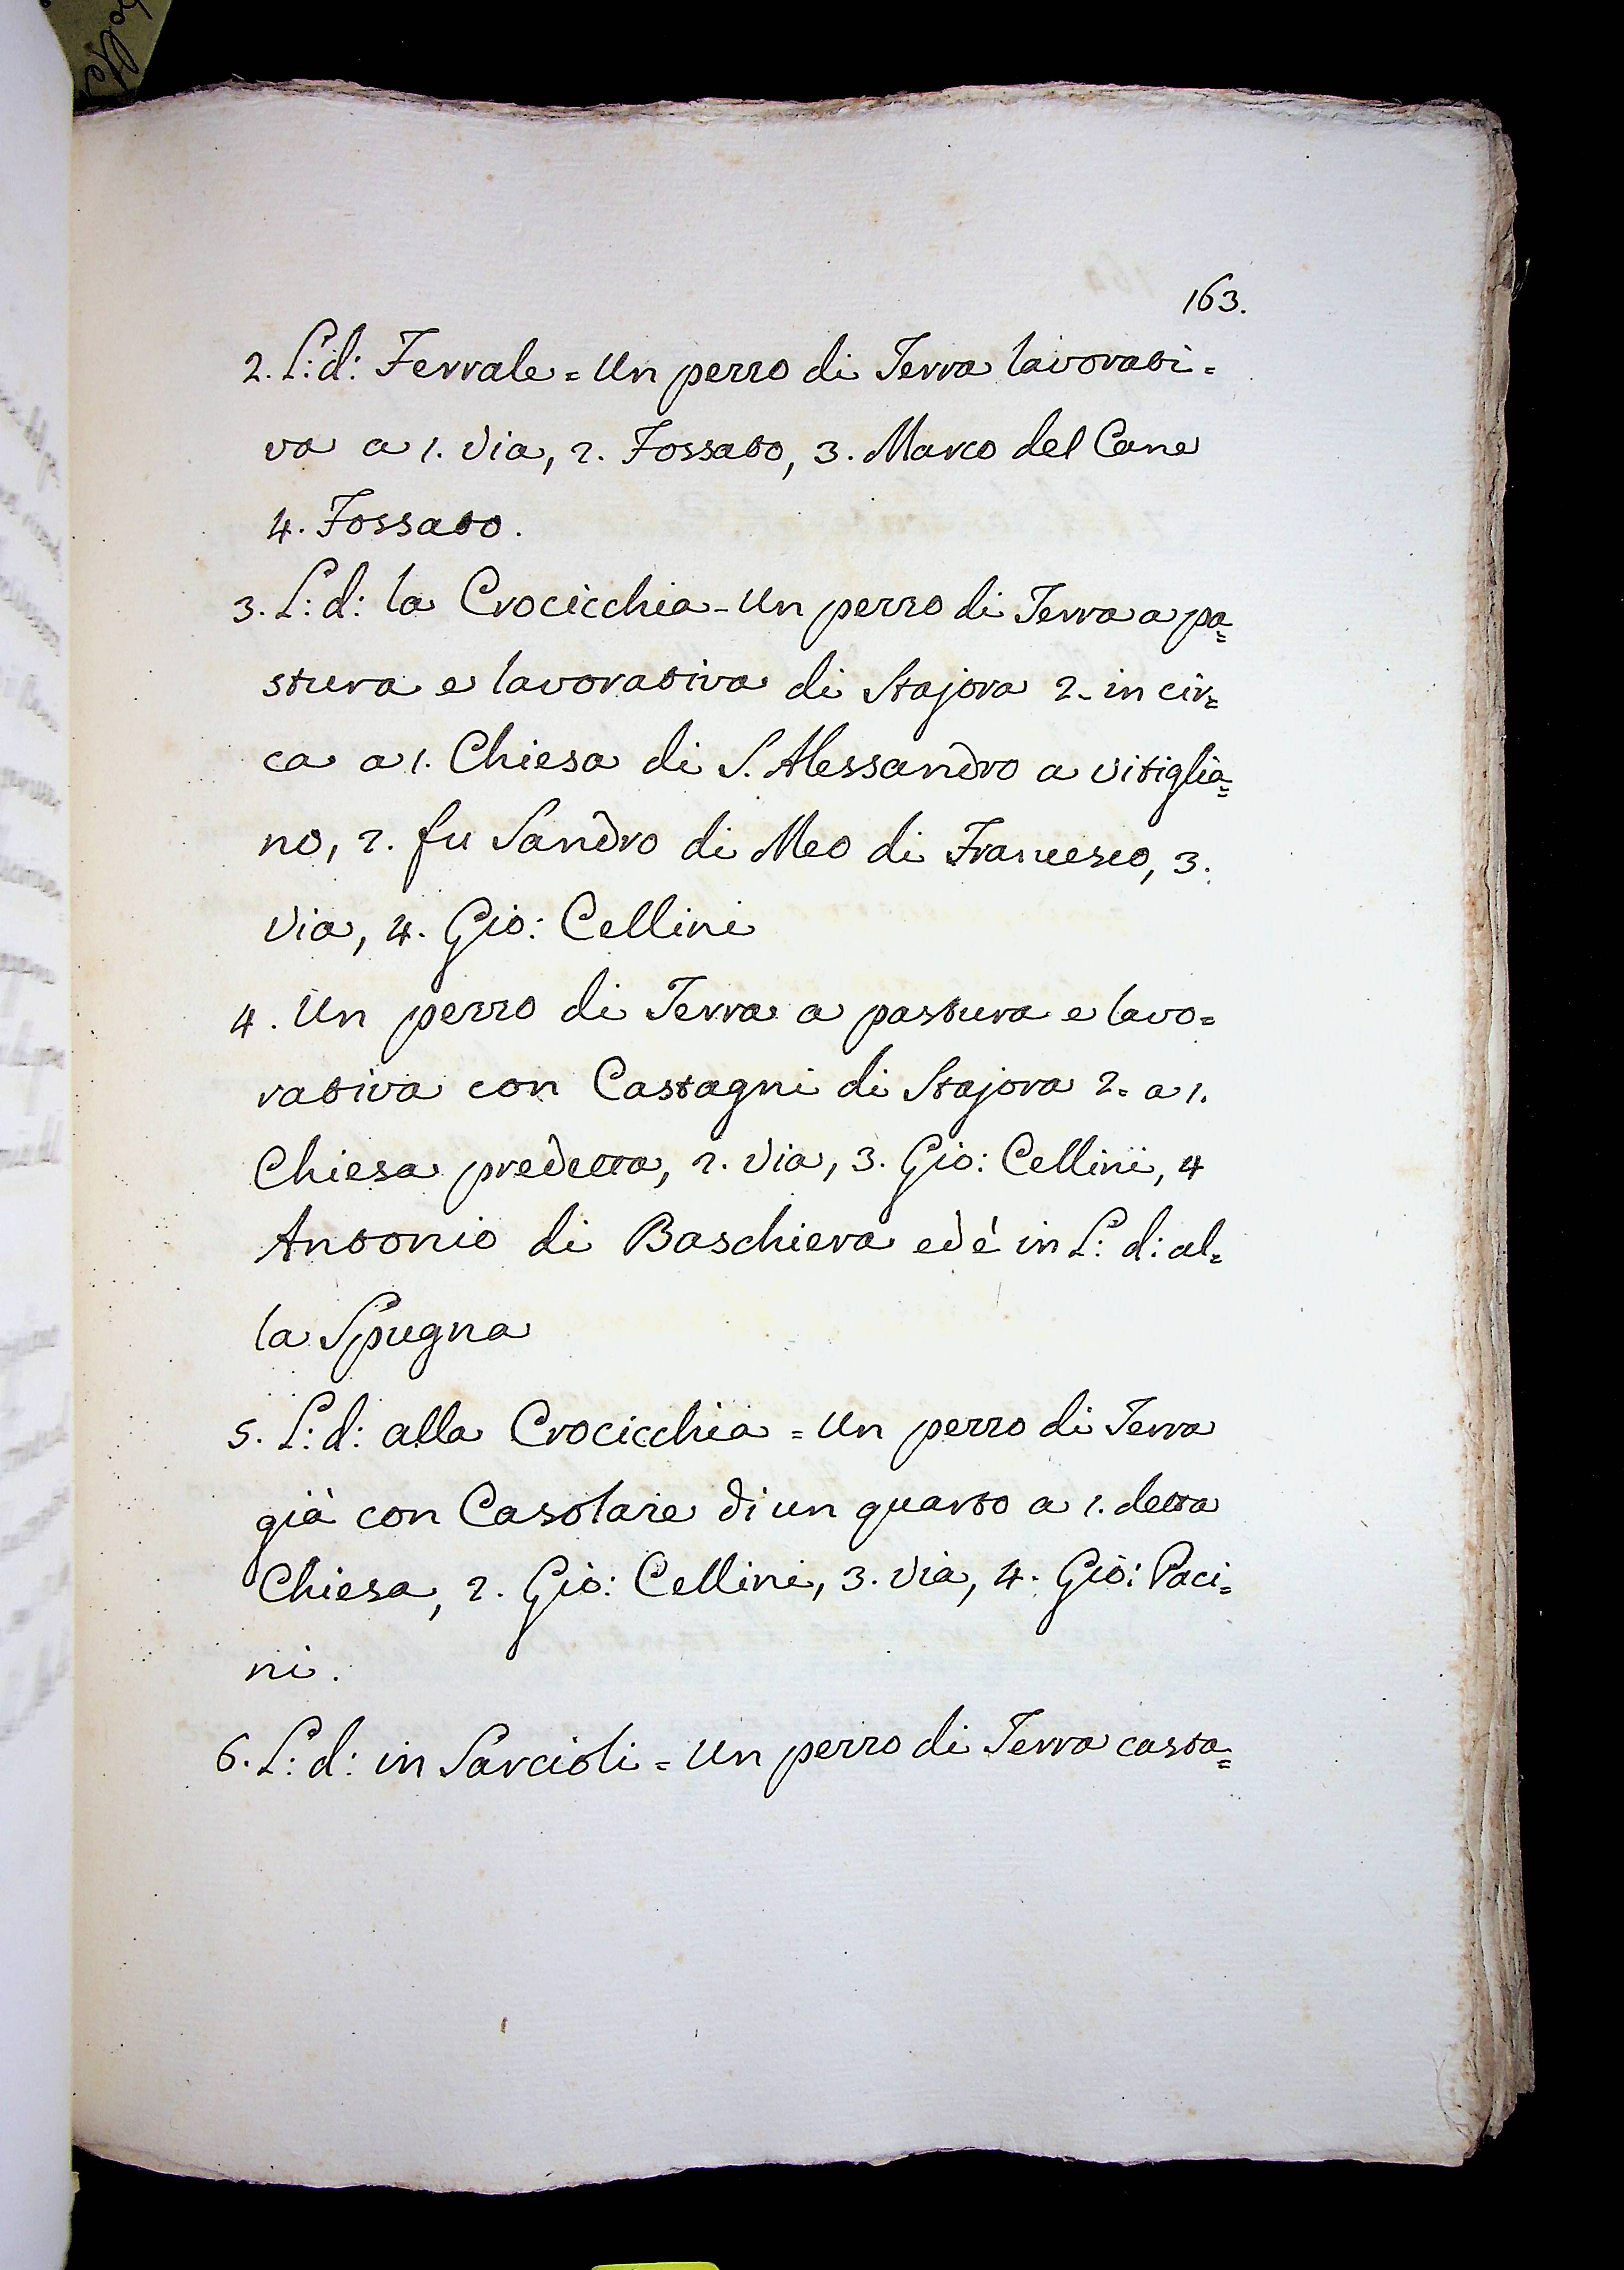 163.
2. L: d: Ferrale = Un pezzo di Terra lavorati=
va a 1. Via, 2. Fossato, 3. Marco del Cane
4. Fossato.
3. L: d: la Crocicchia - Un pezzo di Terra a pa=
stura e lavorativa di Stajora 2. in cir=
ca a 1. Chiesa di S. Alessandro a Vitiglia=
no, 2. fu Sandro di Meo di Francesco, 3.
Via, 4. Gio: Cellini
4. Un pezzo di Terra a pastura e lavo=
rativa con Castagni di Stajora 2. a 1.
Chiesa predetta, 2. Via, 3. Gio: Cellini, 4
Antonio di Baschiera ed é in L: d: al=
la Spugna
5. L: d: alla Crocicchia = Un pezzo di Terra
già con Casolare di un quarto a 1. detta
Chiesa, 2. Gio: Cellini, 3. Via, 4. Gio: Paci=
ni.
6. L: d: in Sarcioli = Un pezzo di Terra casta=